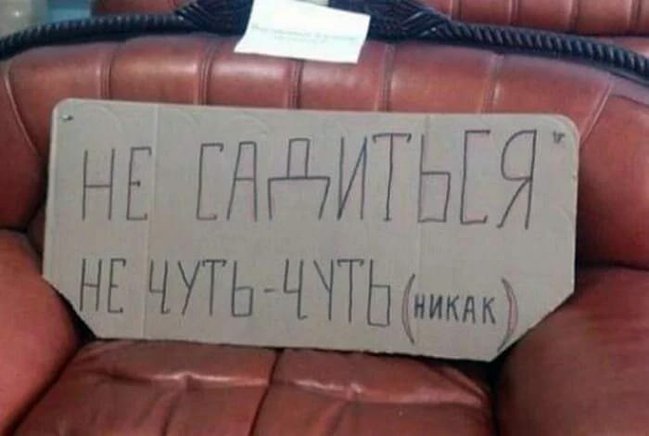 НЕ САДИТЬСЯ
НЕ ЧУТЬ-ЧУТЬ (НИКАК)